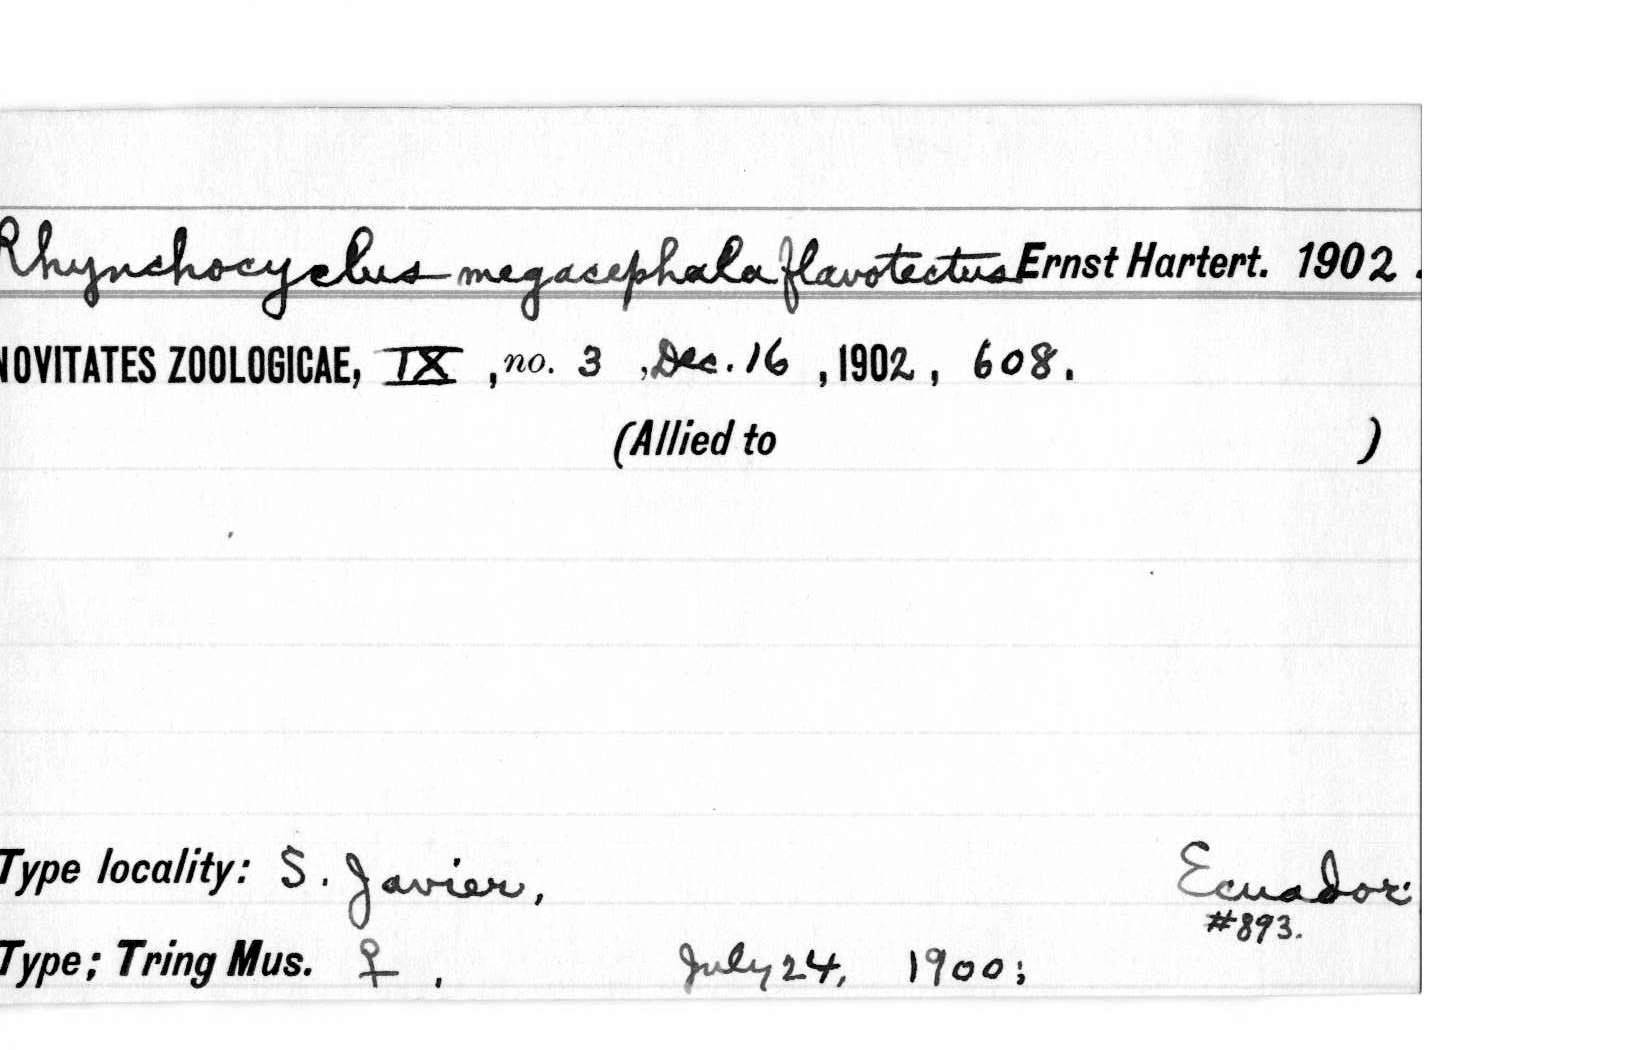 Rhynchocyclus megacephala flavotectus Ernst Hartert. 1902.
NOVITATES ZOOLOGICAE, IX, no. 3, Dec. 16, 1902, 608.
(Allied to )
Type locality: S. Javier, Ecuador:
#893.
Type; Tring Mus. ♀, July 24, 1900;